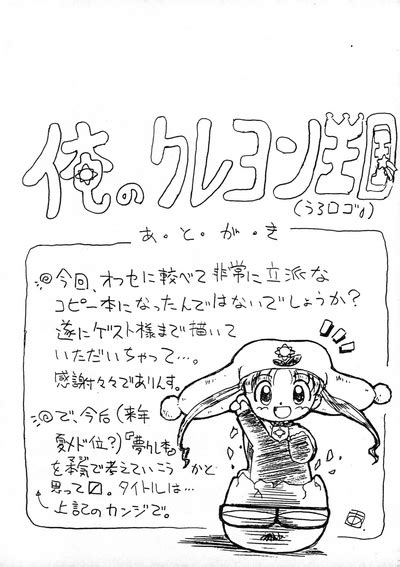 俺のクレヨン王国
(うろロゴ)
あ・と・が・き
今回、に較べて非常に立派な
コピー本になったんではないでしょうか?
遂にゲスト様まで描いて
いただいちゃって…。
感謝々々でありんす。
で、今后(来年
夏メド位?)『夢クレ
を本気で考えていこうかと
思って〼。タイトルは…
上記のカンジで。